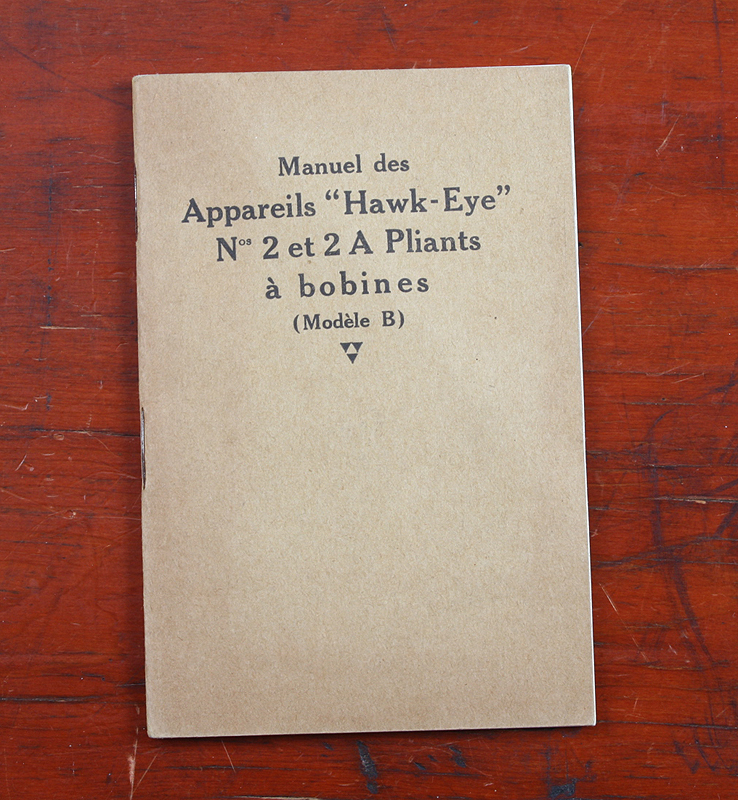 Manuel des
Appareils “Hawk-Eye”
Nos 2 et 2 A Pliants
à bobines
(Modèle B)